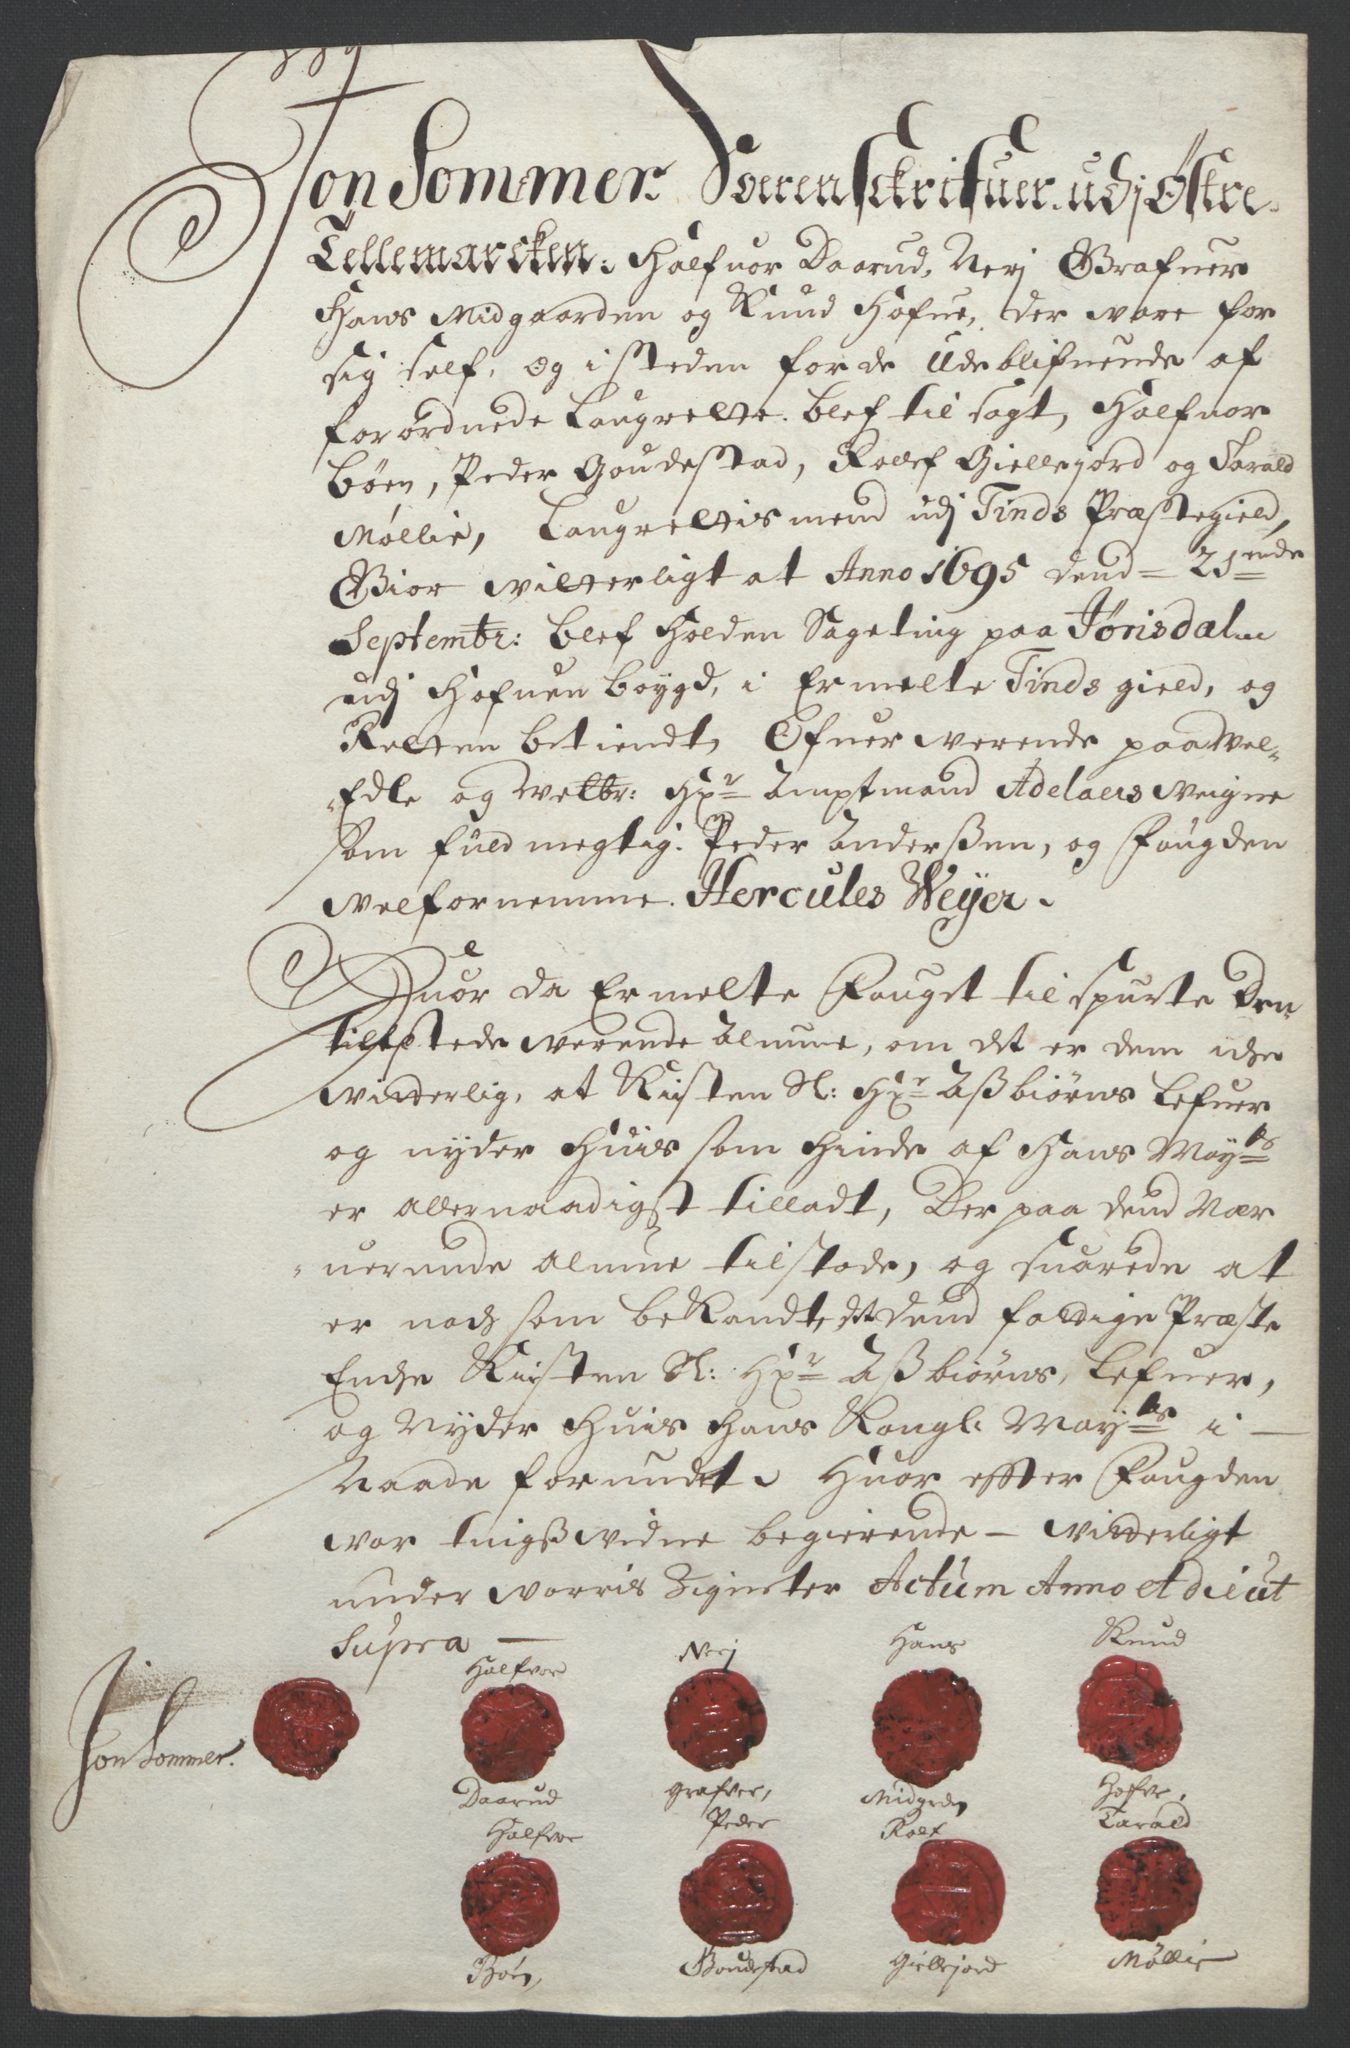 Jon Sommer Sorenschrifuer udj Østre
Tellemarcken: Halfuor Daarud, Nerj Grafuer
Hans Midgaarden og Knud Hofue, der vare for
sig self, og i steden for de Udeblifuende af
forordnede Laugrette blef til sagt, Halfuor
Böen, Peder Goudestad, Rolef Giellejord og Tarald
Møllie, Laugrettismend udj Tinds Præstegield,
Giør witterligt at Anno 1695 dend 21 ende
Septembr: blef holden Sageting paa Jørisdalen
udj Hofuen boygd, i Ermelte Tinds gield, og
Retten betiendt, Ofuer werende paa Wel-
Edle og Welbr: Hr Amptmand Adelaers weigne
som fuldmegtig Peder Anderßen, og Fougden
welfornemme Hercules Weÿer.
Huor da Ermelte Fouget tilspurte den
tilstede werende Almue, om det er dem icke
witterlig, at Kirsten Sl: Hr Aßbiørns lefuer
og nyder huis som hinde af Hans Mayts
er allernaadigst tilladt, Der paa dend Nær
uerende Almue tilstode, og suarede at
er nock som bekandt, at dend fattige Præste
Encke Kirsten Sl: Hr Aßbiørns, lefuer,
og Nyder huis Hans Kongl: Mayts i
Naade forundt. Huor effter Fougden
war tingßwidne begierende – witterligt
under worris Zigneter Actum Anno et die ut
Supra
Halfvor Nerj Hans Knud
Jon Sommer.
Daarud Grafver, Midgrden Hofve,
Halfvor Peder Rolf Tarald
Böen, Goudestad Giellejord Møllie